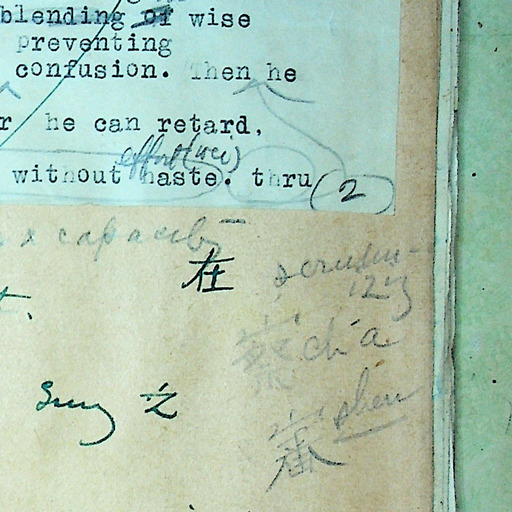 blending of wise
preventing
confusion. Then he
r he can retard,
effort (wei)
without haste. thru (2)
& capacity
在 scrutin-
izing
察 ch'a
t.
Sung 之
審 shen